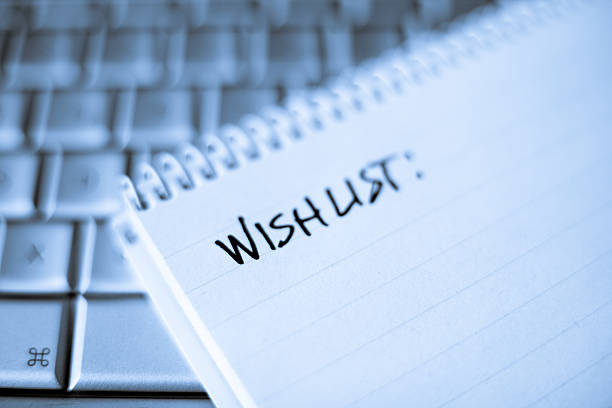 WISH LIST:
⌘